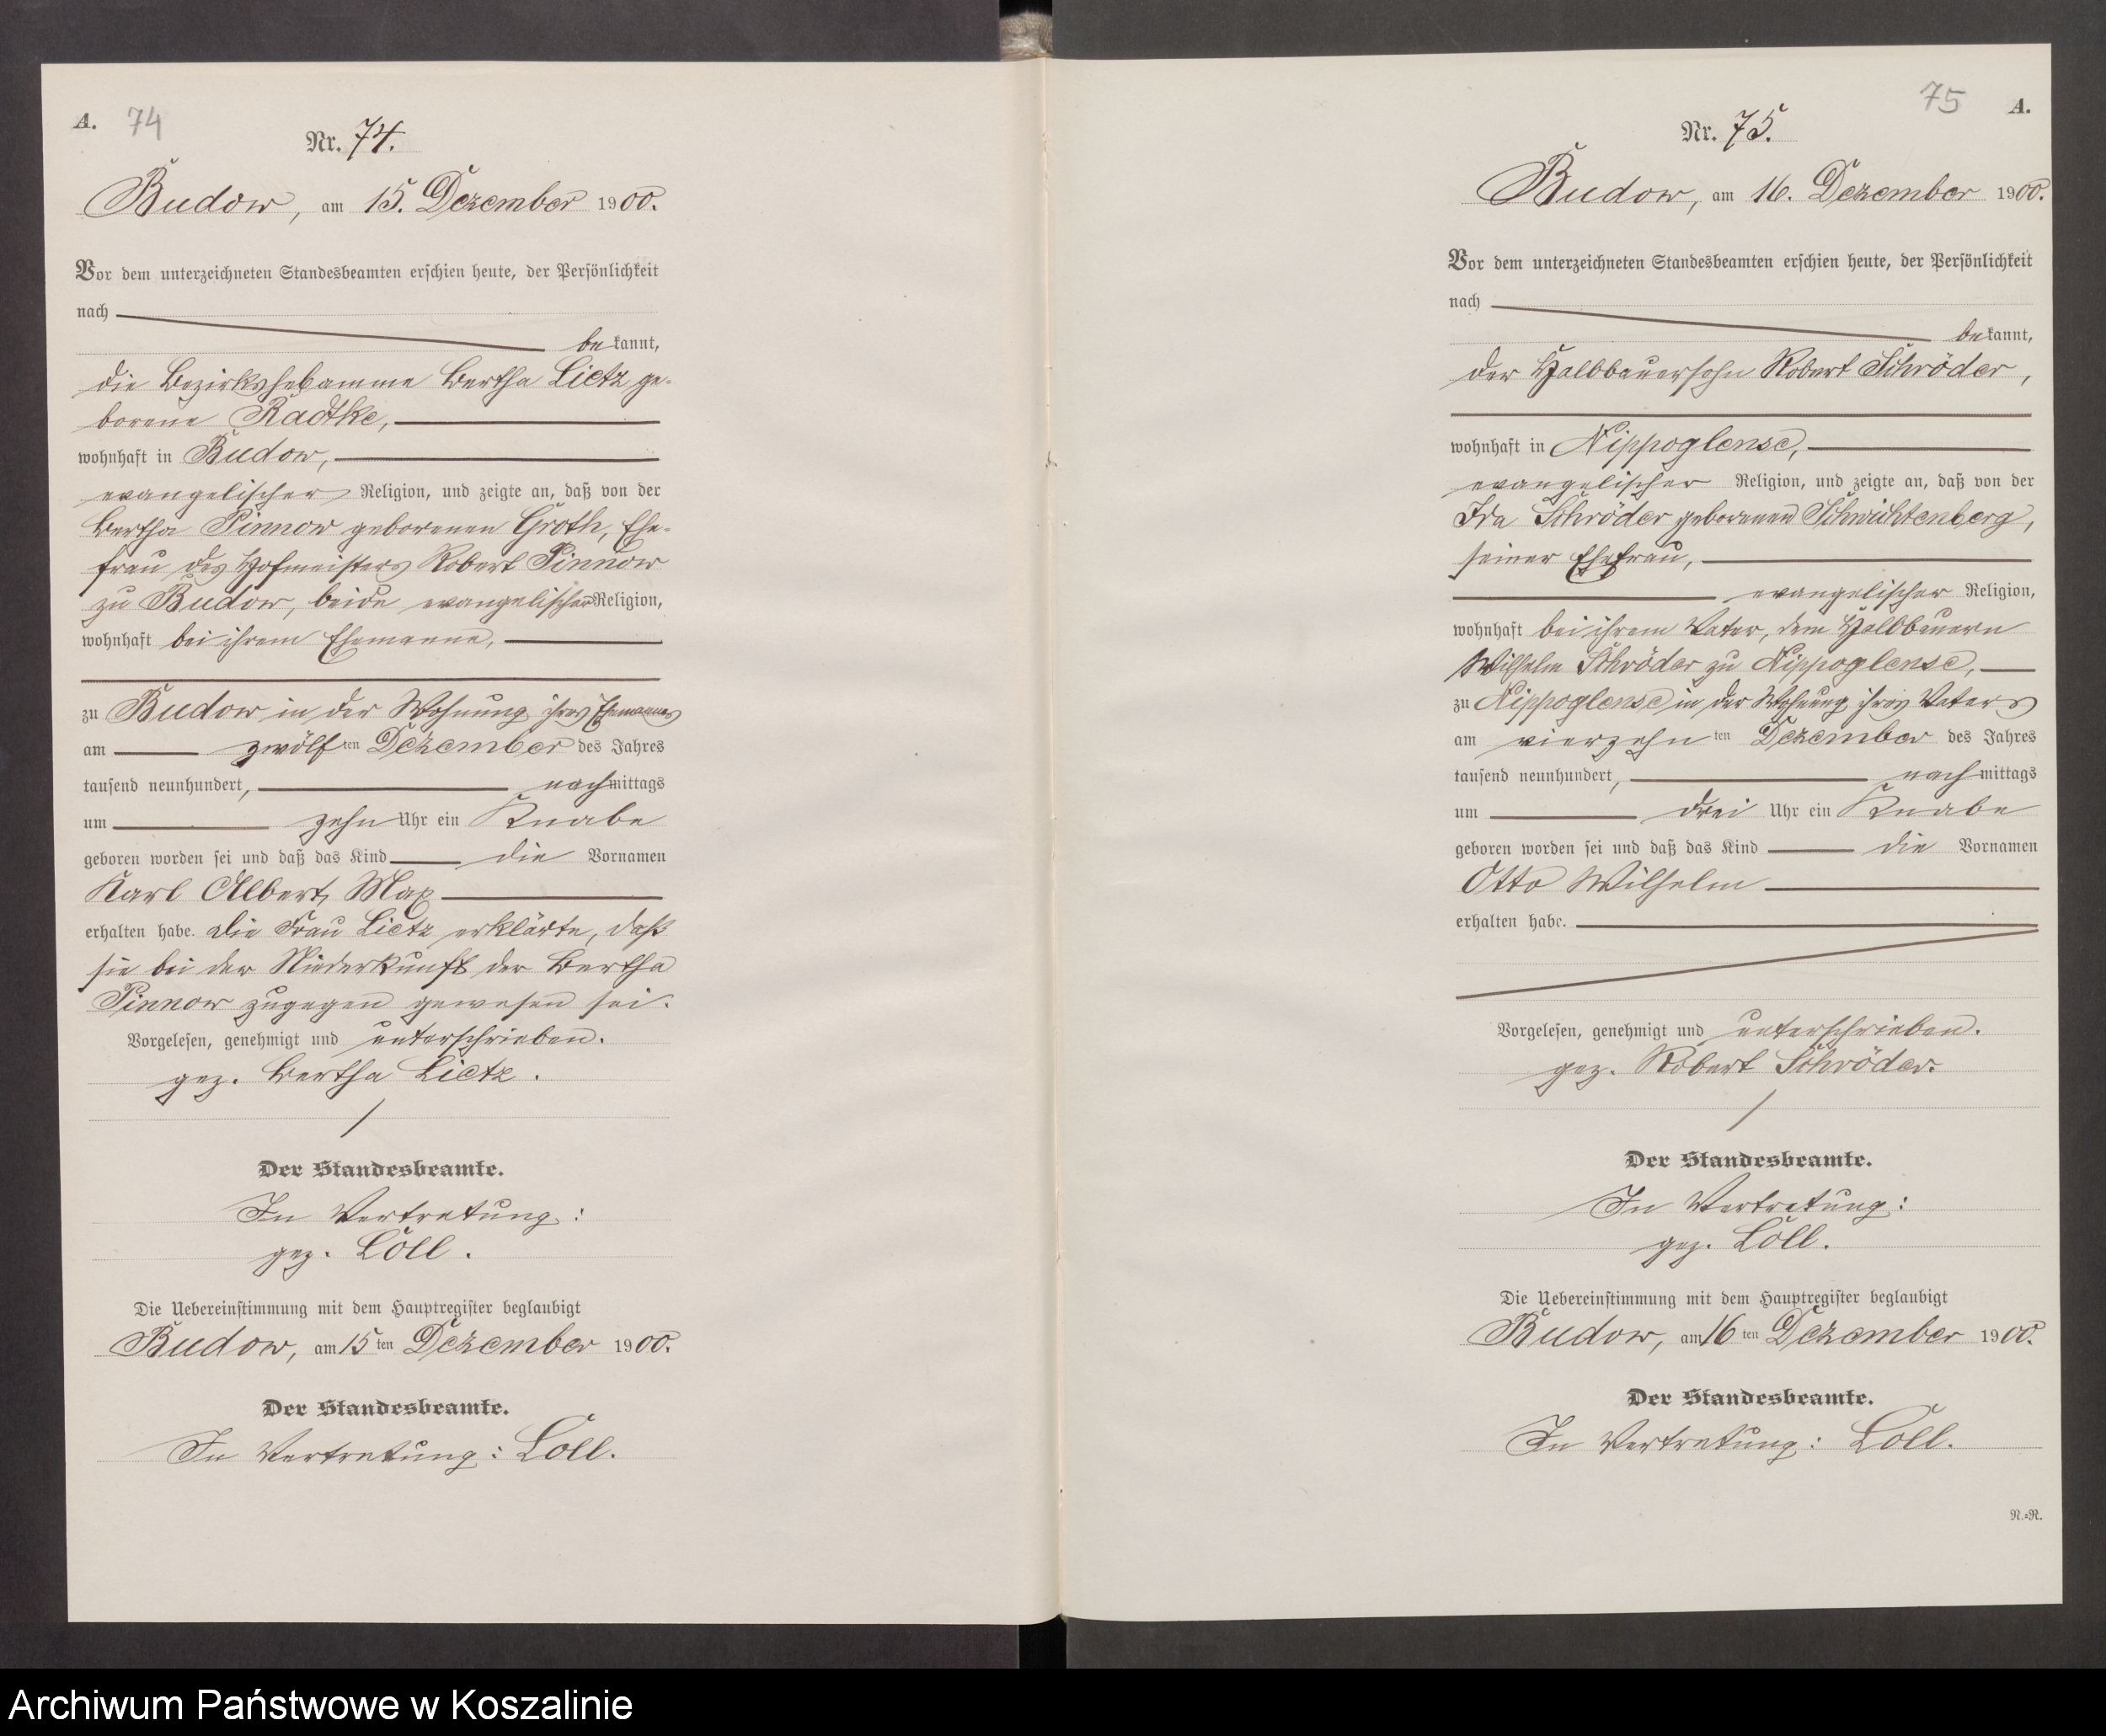 A. 74
Nr. 74.
Budow, am 15. Dezember 1900.
Vor dem unterzeichneten Standesbeamten erschien heute, der Persönlichkeit
nach
bekannt,
die Bezirkshebamme Bertha Lietz ge-
borene Radtke,
wohnhaft in Budow,
evangelischer Religion, und zeigte an, daß von der
Bertha Pinnow geborenen Groth, Ehe-
frau des Hofmeisters Robert Pinnow
zu Budow, beide evangelischer Religion,
wohnhaft bei ihrem Ehemanne,
zu Budow in der Wohnung ihres Ehemannes
am zwölften Dezember des Jahres
tausend neunhundert, nachmittags
um zehn Uhr ein Knabe
geboren worden sei und daß das Kind die Vornamen
Karl Albert Max
erhalten habe. Die Frau Lietz erklärte, daß
sie bei der Niederkunft der Bertha
Pinnow zugegen gewesen sei.
Vorgelesen, genehmigt und unterschrieben.
gez. Bertha Lietz.
Der Standesbeamte.
In Vertretung:
gez. Löll.
Die Uebereinstimmung mit dem Hauptregister beglaubigt
Budow, am 15ten Dezember 1900.
Der Standesbeamte.
In Vertretung: Löll.
75 A.
Nr. 75.
Budow, am 16. Dezember 1900.
Vor dem unterzeichneten Standesbeamten erschien heute, der Persönlichkeit
nach
bekannt,
der Halbbauersohn Robert Schröder,
wohnhaft in Nippoglense,
evangelischer Religion, und zeigte an, daß von der
Ida Schröder geborenen Schwichtenberg,
seiner Ehefrau,
evangelischer Religion,
wohnhaft bei ihrem Vater, dem Halbbauern
Wilhelm Schröder zu Nippoglense,
zu Nippoglense in der Wohnung ihres Vaters
am vierzehnten Dezember des Jahres
tausend neunhundert, nachmittags
um drei Uhr ein Knabe
geboren worden sei und daß das Kind die Vornamen
Otto Wilhelm
erhalten habe.
Vorgelesen, genehmigt und unterschrieben.
gez. Robert Schröder.
Der Standesbeamte.
In Vertretung:
gez. Löll.
Die Uebereinstimmung mit dem Hauptregister beglaubigt
Budow, am 16ten Dezember 1900.
Der Standesbeamte.
In Vertretung: Löll.
N.=N.
Archiwum Państwowe w Koszalinie